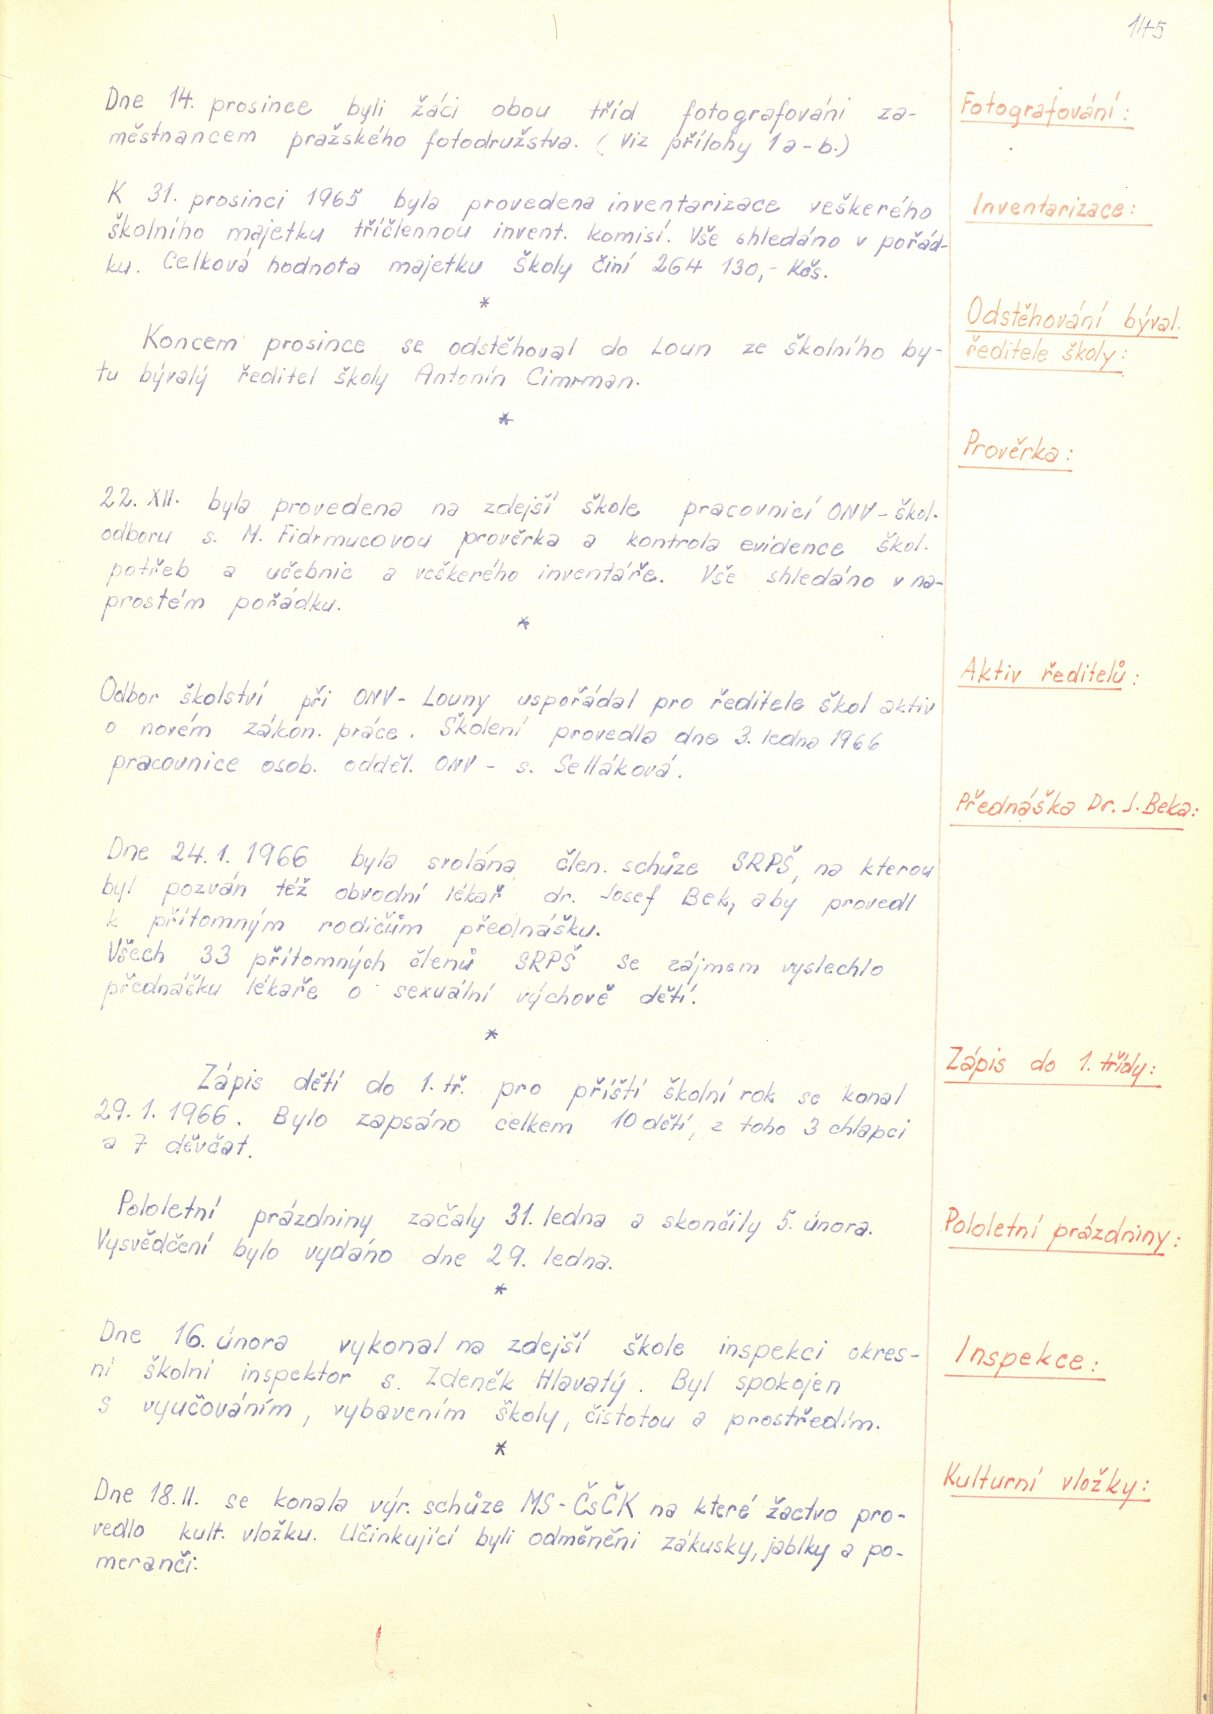 145
Fotografování:
Dne 14. prosince byli žáci obou tříd fotografováni za-
městnancem pražského fotodružstva. (Viz přílohy 1a-b.)
Inventarizace:
K 31. prosinci 1965 byla provedena inventarizace veškerého
školního majetku tříčlennou invent. komisí. Vše shledáno v pořád-
ku. Celková hodnota majetku školy činí 264 130,- Kčs.
*
Odstěhování býval.
ředitele školy:
Koncem prosince se odstěhoval do Loun ze školního by-
tu bývalý ředitel školy Antonín Cimrman.
*
Prověrka:
22. XII. byla provedena na zdejší škole pracovnicí ONV-škol.
odboru s. M. Fidrmucovou prověrka a kontrola evidence škol.
potřeb a učebnic a veškerého inventáře. Vše shledáno v na-
prostém pořádku.
*
Aktiv ředitelů:
Odbor školství při ONV- Louny uspořádal pro ředitele škol aktiv
o novém zákon. práce. Školení provedla dne 3. ledna 1966
pracovnice osob. odděl. ONV - s. Selláková.
Přednáška Dr. J. Beka:
Dne 24.1. 1966 byla svolána člen. schůze SRPŠ, na kterou
byl pozván též obvodní lékař dr. Josef Bek, aby provedl
k přítomným rodičům přednášku.
Všech 33 přítomných členů SRPŠ se zájmem vyslechlo
přednášku lékaře o sexuální výchově dětí.
*
Zápis do 1. třídy:
Zápis dětí do 1. tř. pro příští školní rok se konal
29. 1. 1966. Bylo zapsáno celkem 10 dětí, z toho 3 chlapci
a 7 děvčat.
Pololetní prázdniny:
Pololetní prázdniny začaly 31. ledna a skončily 5. února.
Vysvědčení bylo vydáno dne 29. ledna.
*
Inspekce:
Dne 16. února vykonal na zdejší škole inspekci okres-
ní školní inspektor s. Zdeněk Hlavatý. Byl spokojen
s vyučováním, vybavením školy, čistotou a prostředím.
*
Kulturní vložky:
Dne 18.II. se konala výr. schůze MS-ČsČK na které žactvo pro-
vedlo kult. vložku. Učinkující byli odměněni zákusky, jablky a po-
meranči.